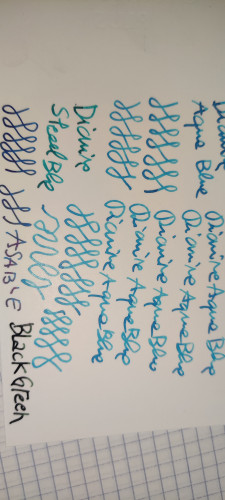 Diamine Diamine Aqua Blue
Aqua Blue Diamine Aqua Blue
Diamine Aqua Blue
Diamine Aqua Blue
Diamine Aqua Blue
Diamine
Steel Blue